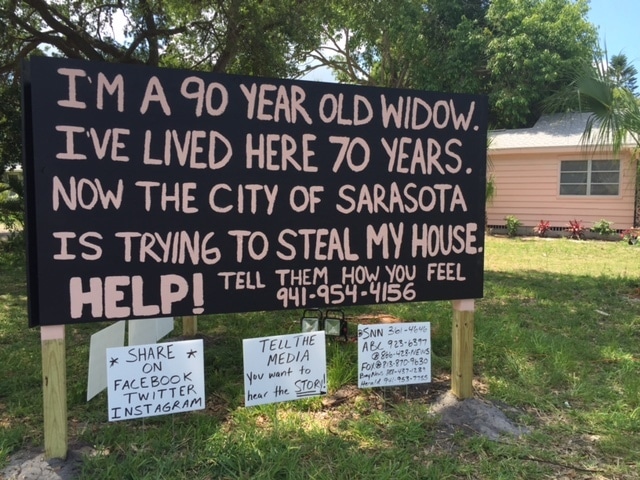 I'M A 90 YEAR OLD WIDOW.
I'VE LIVED HERE 70 YEARS.
NOW THE CITY OF SARASOTA
IS TRYING TO STEAL MY HOUSE.
HELP! TELL THEM HOW YOU FEEL
941-954-4156
* SHARE *
ON
FACEBOOK
TWITTER
INSTAGRAM
TELL THE
MEDIA
You want to
hear the STORY!
SNN 361-4646
ABC 923-6397
866-428-NEWS
FOX 813-870-9630
Herald 941-953-7755